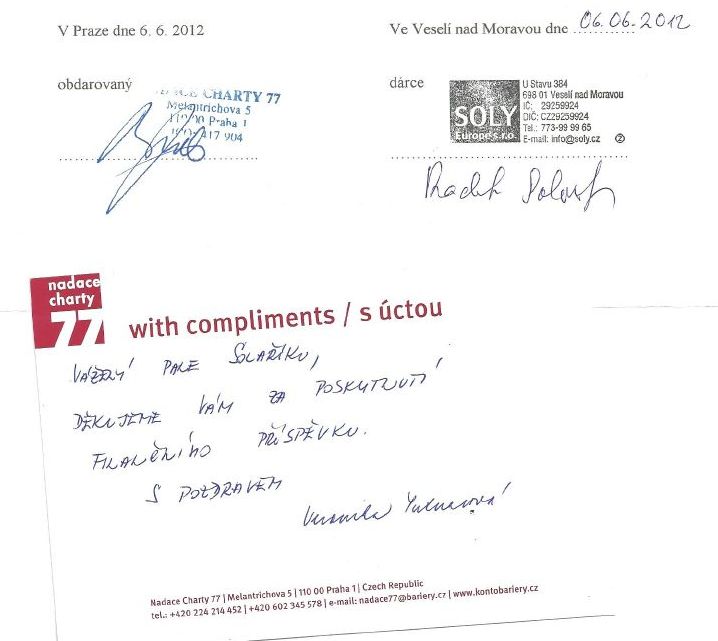 V Praze dne 6. 6. 2012
Ve Veselí nad Moravou dne 06.06.2012
obdarovaný
CHARTY 77
Melantrichova 5
110 00 Praha 1
417 904
dárce
SOLY
Europe s.r.o.
U Stavu 384
698 01 Veselí nad Moravou
IČ: 29259924
DIČ: CZ29259924
Tel.: 773-99 99 65
E-mail: info@soly.cz 2
Radek
nadace
charty
77
with compliments / s úctou
VÁŽENÝ PANE SOLAŘÍKU,
DĚKUJEME VÁM ZA POSKYTNUTÍ
FINANČNÍHO PŘÍSPĚVKU.
S POZDRAVEM
Nadace Charty 77 | Melantrichova 5 | 110 00 Praha 1 | Czech Republic
tel.: +420 224 214 452 | +420 602 345 578 | e-mail: nadace77@bariery.cz | www.kontobariery.cz